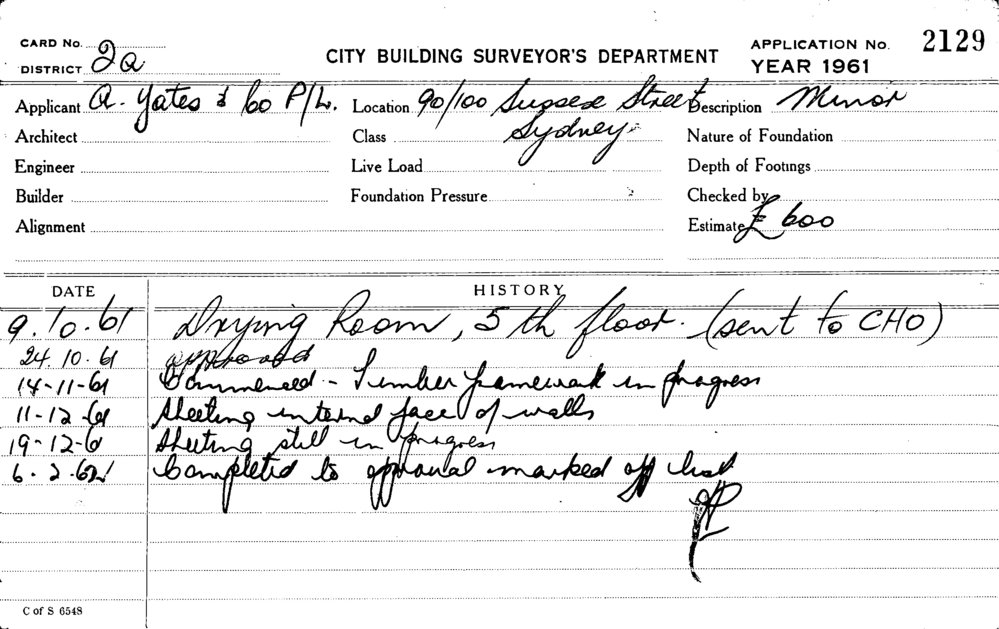 CARD No. 2a
DISTRICT
CITY BUILDING SURVEYOR'S DEPARTMENT
APPLICATION No. 2129
YEAR 1961
Applicant A. Yates & Co P/L. Location 90/100 Sussex Street Description Minor
Architect Class Sydney Nature of Foundation
Engineer Live Load Depth of Footings
Builder Foundation Pressure Checked by
Alignment Estimate £ 600
DATE HISTORY
9.10.61 Drying Room, 5th floor. (sent to CHO)
24.10.61 approved
14-11-61 Commenced - Timber framework in progress
11-12-61 Sheeting internal face of walls
19-12-6 Sheeting still in progress
6.2.62 Completed to approval marked off list
C of S 6548